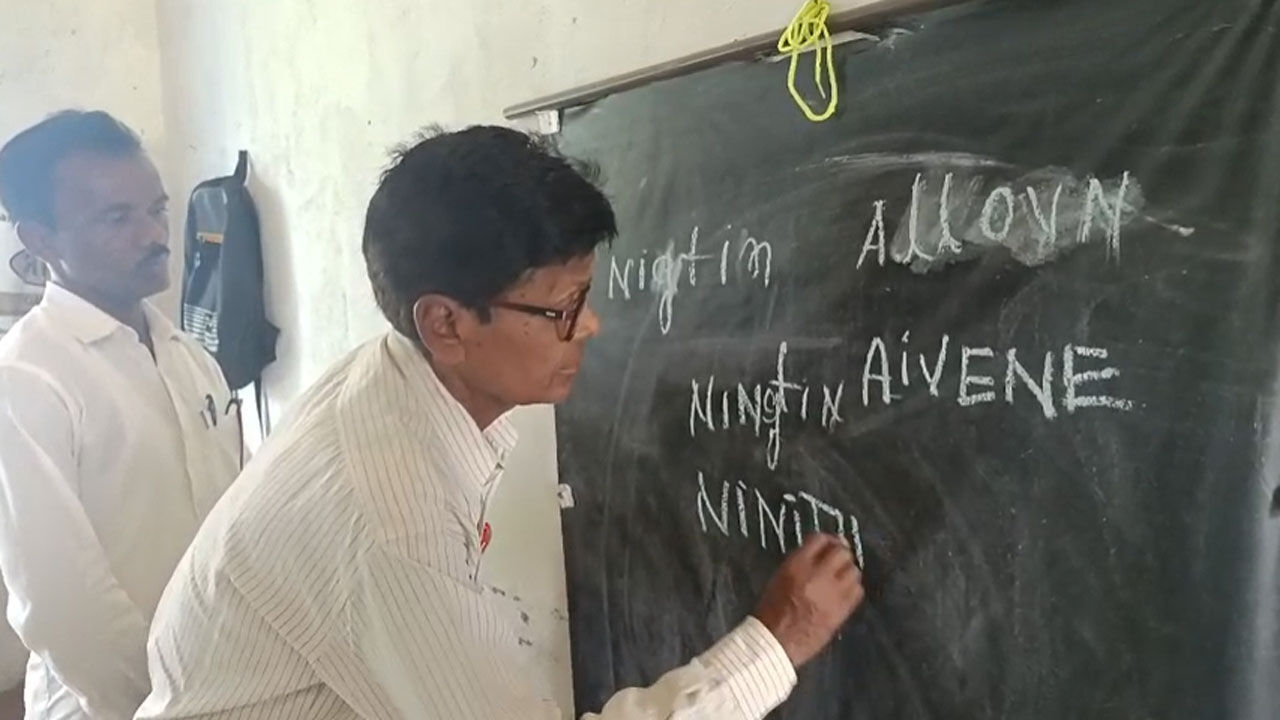 Nigtin Alloyn
NiNgtiN AiVENE
NiNiTI